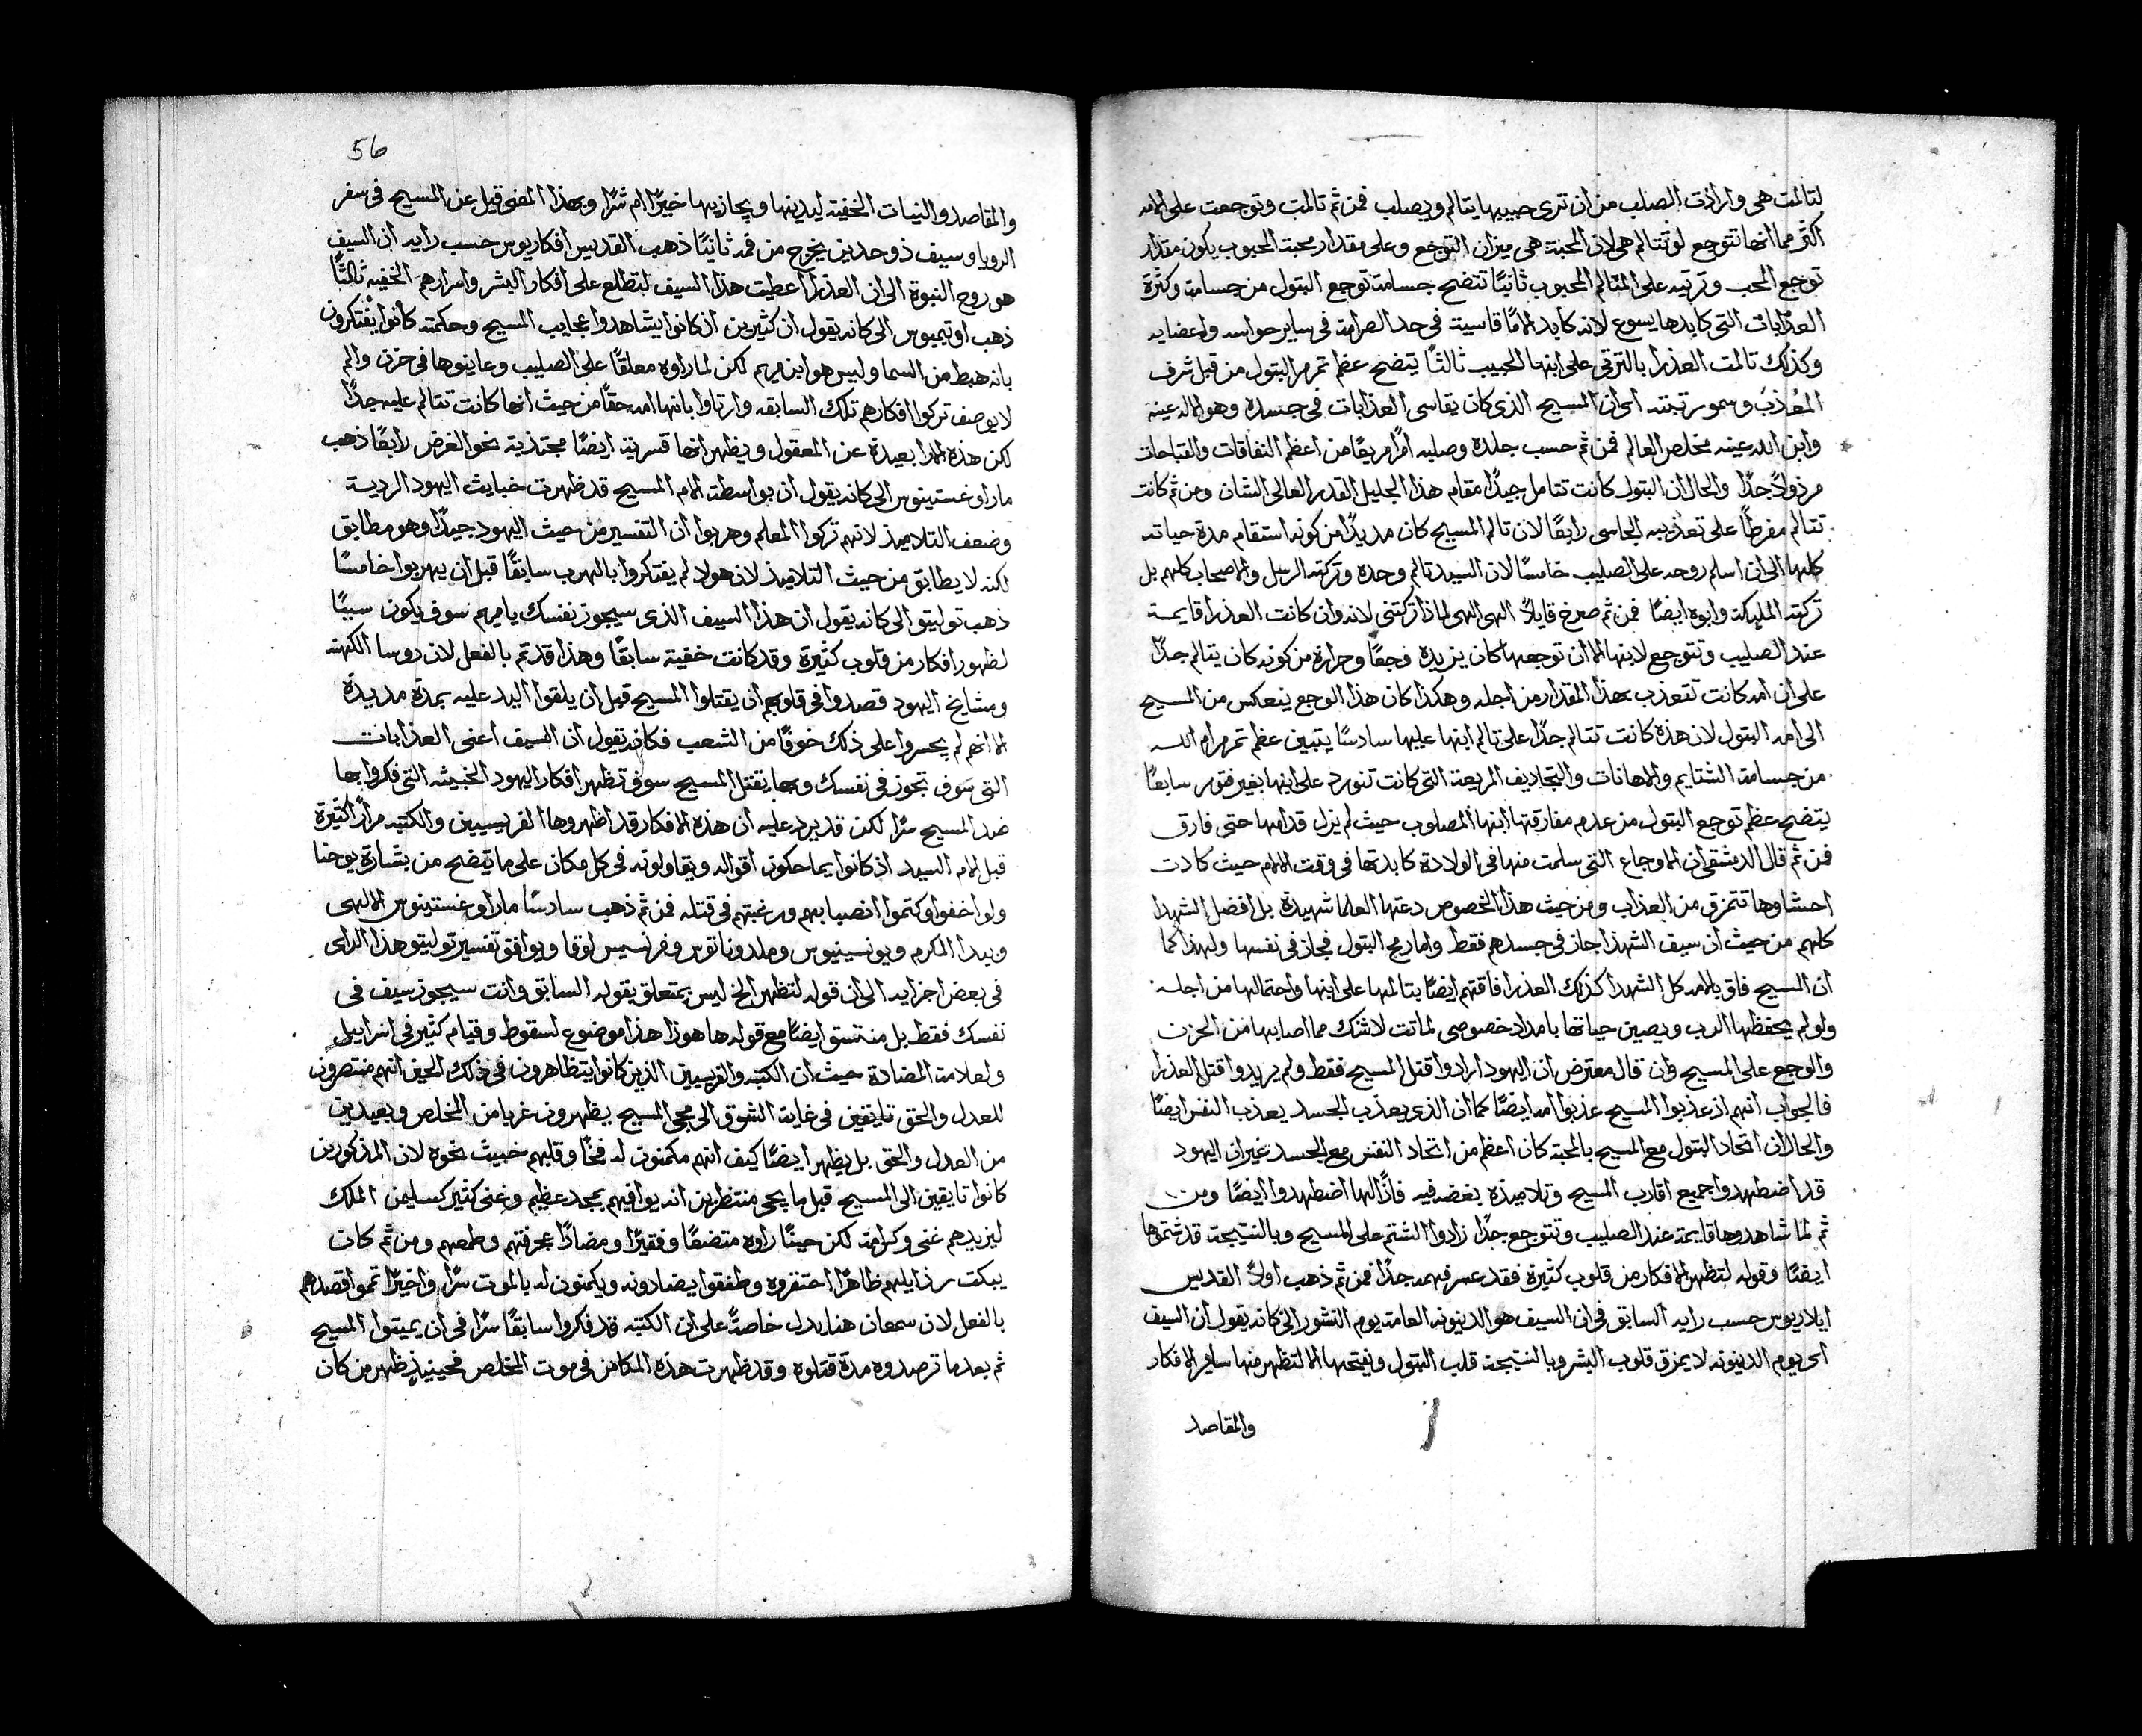 لتالمت هي وارادت الصلب من ان ترى حبيبها يتالم ويصلب فمن ثم تالمت وتوجعت على الامه
اكثر مما انها تتوجع لو تتالم هي لان المحبة هي ميزان التوجع وعلى مقدار محبة المحبوب يكون مقدار
توجع المحب وترتيه على المتالم المحبوب ثانيًا تتضح جسامة توجع البتول من جسامة وكثرة
العذابات التي كابدها يسوع لانه كابد الامًا قاسية في حد الصرامة في ساير حواسه واعضايه
وكذلك تالمت العذرا بالترتي على ابنها الحبيب ثالثًا يتضح عظم تمرمر البتول من قبل شرف
المُعذب وسمو رتبته اي ان المسيح الذي كان يقاسي العذابات في جسده وهو الاله عينه
وابن الله عينه مخلص العالم فمن ثم حسب جلده وصلبه امرًا مريعًا من اعظم النفاقات والقباحات
مرذولاً جدًا والحال ان البتول كانت تتامل جيدًا مقام هذا الجليل القدر العالي الشان ومن ثم كانت
تتالم مفرطًا على تعذيبه الجاسي رابعًا لان تالم المسيح كان مديدًا من كونه استقام مدة حياته
كلها الى ان اسلم روحه على الصليب خامسًا لان السيد تالم وحده وتركته الرسل والاصحاب كلهم بل
تركته المليكة وابوه ايضًا فمن ثم صرخ قايلاً الهي الهي لماذا تركتني لانه وان كانت العذرا قايمة
عند الصليب وتتوجع لابنها الا ان توجعها كان يزيده فجعًا وحرارة من كونه كان يتالم جدًا
على ان امه كانت تتعذب بهذا المقدار من اجله وهكذا كان هذا الوجع ينعكس من المسيح
الى امه البتول لان هذه كانت تتالم جدًا على تالم ابنها عليها سادسًا يتبين عظم تمرمر ام الله
من جسامة الشتايم والاهانات والتجاديف المريعة التي كانت تتورد على ابنها بغير فتور سابعًا
يتضح عظم توجع البتول من عدم مفارقتها ابنها المصلوب حيث لم يزل قدامها حتى فارق
فمن ثم قال الدمشقي ان الاوجاع التي سلمت منها في الولادة كابدتها في وقت الالام حيث كادت
احشاوها تتمزق من العذاب ومن حيث هذا الخصوص دعتها العلما شهيدة بل افضل الشهدا
كلهم من حيث ان سيف الشهدا جاز في جسدهم فقط واما رمح البتول فجاز في نفسها ولهذا كما
ان المسيح فاق بالامه كل الشهدا كذلك العذرا فاقتهم ايضًا بتالمها على ابنها واحتمالها من اجله
ولو لم يحفظها الرب ويصين حياتها بامداد خصوصي لماتت لا شك مما اصابها من الحزن
والوجع على المسيح وان قال معترض ان اليهود ارادوا قتل المسيح فقط ولم يريدوا قتل العذرا
فالجواب انهم اذ عذبوا المسيح عذبوا امه ايضًا كما ان الذي يعذب الجسد يعذب النفس ايضًا
والحال ان اتحاد البتول مع المسيح بالمحبة كان اعظم من اتحاد النفس مع الجسد غير ان اليهود
قد اضطهدوا جميع اقارب المسيح وتلاميذه بغضه فيه فاذًا لها اضطهدوا ايضًا ومن
ثم لما شاهدوها قايمة عند الصليب وتتوجع جدًا زادوا الشتم على المسيح وبالنتيجة قد شتموها
ايضًا وقوله لتظهر الافكار من قلوب كثيرة فقد عسر فهمه جدًا فمن ثم ذهب اولاً القديس
ايلاريوس حسب رايه السابق في ان السيف هو الدينونة العامة يوم النشور الى كانه يقول ان السيف
اي يوم الدينونة لا يمزق قلوب البشر وبالنتيجة قلب البتول ويفتحها الا لتظهر منها ساير الافكار
والمقاصد
56
والمقاصد والنيات الخفية ليدينها ويجازيها خيرًا ام شرًا وبهذا المعنى قيل عن المسيح في سفر
الرويا وسيف ذو حدين يخرج من فمه ثانيًا ذهب القديس افكاريوس حسب رايه ان السيف
هو روح النبوة الى ان العذرا اعطيت هذا السيف لتطلع على افكار البشر واسرارهم الخفية ثالثًا
ذهب اوتيميوس الى كانه يقول ان كثيرين اذ كانوا يشاهدوا عجايب المسيح وحكمته كانوا يفتكرون
بانه هبط من السما وليس هو ابن مريم لكن لما راوه معلقًا على الصليب وعاينوها في حزن والم
لا يوصف تركوا افكارهم تلك السابقه وارتاوا بانها امه حقًا من حيث انها كانت تتالم عليه جدًا
لكن هذه الارا بعيدة عن المعقول ويظهر انها قسرية ايضًا مجتذبة نحو الغرض رابعًا ذهب
مار اوغستينوس الى كانه يقول ان بواسطة الام المسيح قد ظهرت خبايث اليهود الردية
وضعف التلاميذ لانهم تركوا المعلم وهربوا ان التفسير من حيث اليهود جيدًا وهو مطابق
لكنه لا يطابق من حيث التلاميذ لان هولا لم يفتكروا بالهرب سابقًا قبل ان يهربوا خامسًا
ذهب توليتو الى كانه يقول ان هذا السيف الذي سيجوز بنفسك يا مريم سوف يكون سببًا
لظهور افكار من قلوب كثيرة وقد كانت خفية سابقًا وهذا قد تم بالفعل لان روسا الكهنه
ومشايخ اليهود قصدوا في قلوبهم ان يقتلوا المسيح قبل ان يلقوا اليد عليه بمدة مديدة
الا انهم لم يجسروا على ذلك خوفًا من الشعب فكانه يقول ان السيف اعني العذابات
التي سوف تجوز في نفسك وبها يقتل المسيح سوف تظهر افكار اليهود الخبيثه التي فكروا بها
ضد المسيح سرًا لكن قد يرد عليه ان هذه الافكار قد اظهروها الفريسيين والكتبه مرارًا كثيرة
قبل الام السيد اذ كانوا يماحكون اقواله ويقاولونه في كل مكان على ما يتضح من بشارة يوحنا
ولو اخفوا وكتموا انصبابهم ورغبتهم في قتله فمن ثم ذهب سادسًا مار اوغستينوس الالهي
وبيدا المكرم ويونسينيوس وملدوناتوس وفرنسيس لوقا ويوافق تفسير توليتو هذا الراي
في بعض اجزايه الى ان قوله لتظهر الخ ليس بمتعلق بقوله السابق وانت سيجوز سيف في
نفسك فقط بل منتسق ايضًا مع قوله ها هوذا هذا موضوع لسقوط وقيام كثير في اسراييل
ولعلامة المضادة حيث ان الكتبه والفريسيين الذين كانوا يتظاهرون في ذلك الحين انهم منتصرون
للعدل والحق تايقين في غاية الشوق الى مجي المسيح يظهرون غربا من المخلص وبعيدين
من العدل والحق بل يظهر ايضًا كيف انهم مكمنون له فخًا وقلبهم خبيث نحوه لان المذكورين
كانوا تايقين الى المسيح قبل ما يجي منتظرين انه يوافيهم بمجد عظيم وغنى كثير كسليمن الملك
ليزيدهم غنى وكرامة لكن حينًا راوه متضعًا وفقيرًا ومضادًا عجرفتهم وطمعهم ومن ثم كان
يبكت رذايلهم ظاهرًا احتقروه وطفقوا يضادونه ويكمنون له بالموت سرًا واخيرًا تمموا قصدهم
بالفعل لان سمعان هنا يدل خاصةً على ان الكتبه قد فكروا سابقًا سرًا في ان يميتوا المسيح
ثم بعد ما ترصدوه مدة قتلوه وقد ظهرت هذه المكامن في موت المخلص فحينيذٍ ظهر من كان